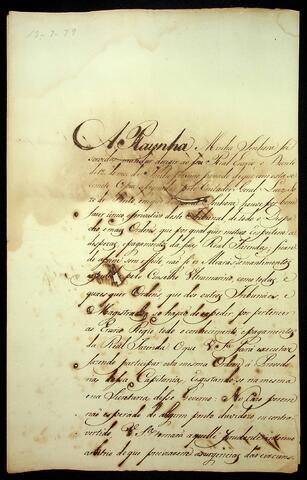 A Raynha Minha Senhora foi
servida mandar dirigir ao seu Real Erario o Decreto
de 12 de de Julho proximo passado de que com esta se re
mete Copia assignada pelo Contador Geral Luiz Jo
ze de Brito, em que a Senhora houve por bem
fazer unico e privativo deste Tribunal de todo o Despa
cho e mais Ordens que por qual quer motivo respeitem a
despezas, e pagamentos da sua Real Fazenda, ficando
de nenhum effeito, não só os Alvarás e mantimentos
pelo Conselho Ultramarino, como todas, e
quaes quer Ordens que dos outros Tribunaes e
Magistrados se hajão de expedir por pertencer
ao Erario Regio todo o conhecimento, e pagamentos
da Real Fazenda. O que V. S.ª fará executar
fazendo participar esta mesma Ordem á Provedo
ria dessa Capitania, Registando-se na mesma
e na Secretaria desse Governo. No Cazo porem
não esperado de algum ponto duvidozo, ou contro
vertido, V. S.ª tomará aquelle prudente
arbitrio de que precizarem as urgencias das circuns